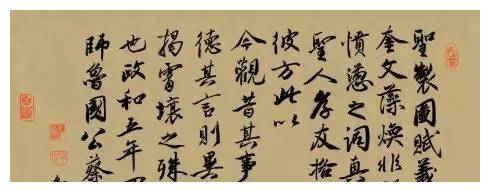 聖製圖賦義
奎文藻煥非
憤懣之詞真
聖人孝友格
彼方此以
今觀昔其事
德其言則異
揭霄壤之殊
也政和五年四
師魯國公蔡